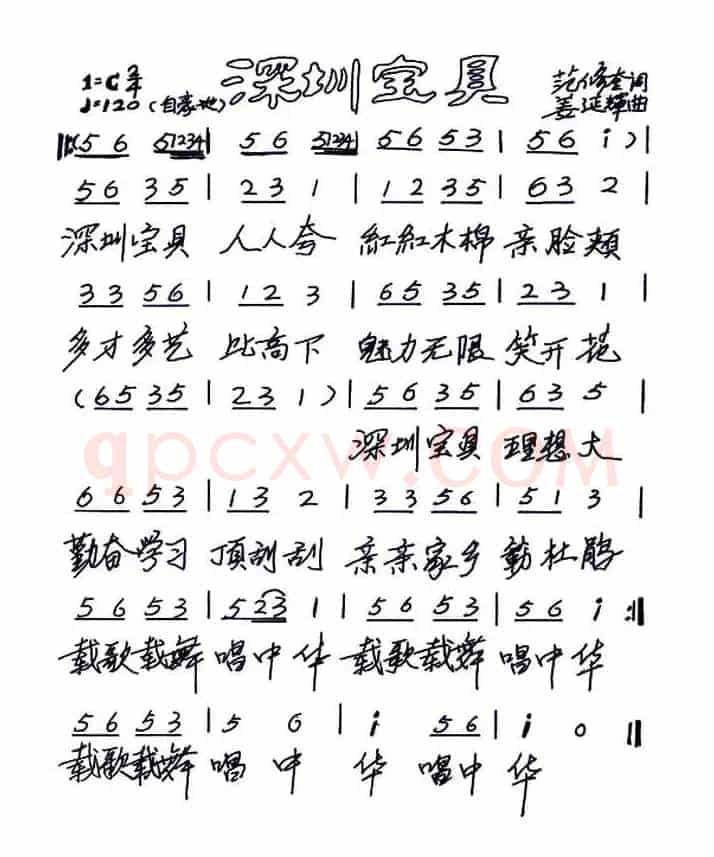 深圳宝具
1=C 2/4
♩=120(自豪地)
范修奎词
姜延辉曲
‖:(5 6 51234 | 5 6 51234 | 56 53 | 56 i ) |
56 35 | 23 1 | 12 35 | 63 2 |
深圳宝具 人人夸 紅紅木棉 亲脸颊
33 56 | 12 3 | 65 35 | 23 1 |
多才多艺 比高下 魅力无限 笑开花
( 65 35 | 23 1 ) | 56 35 | 63 5 |
深圳宝具 理想大
qpcxw.COM
66 53 | 13 2 | 33 56 | 51 3 |
勤奋学习 顶刮刮 亲亲家乡 杜鹃
56 53 | 523 1 | 56 53 | 56 i :‖
载歌载舞 唱中华 载歌载舞 唱中华
56 53 | 5 6 | i 56 | i 0 ‖
载歌载舞 唱 中 华 唱中 华